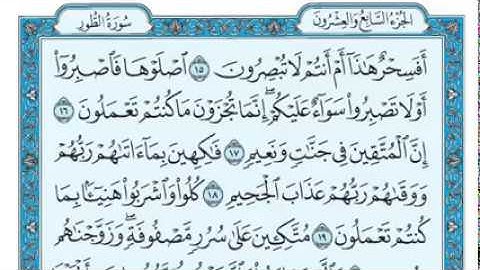 الجزء السابع والعشرون
سورة الطور
أَفَسِحْرٌ هَٰذَآ أَمْ أَنتُمْ لَا تُبْصِرُونَ ١٥ ٱصْلَوْهَا فَٱصْبِرُوٓا۟
أَوْ لَا تَصْبِرُوا۟ سَوَآءٌ عَلَيْكُمْ ۖ إِنَّمَا تُجْزَوْنَ مَا كُنتُمْ تَعْمَلُونَ ١٦
إِنَّ ٱلْمُتَّقِينَ فِى جَنَّٰتٍ وَنَعِيمٍ ١٧ فَٰكِهِينَ بِمَآ ءَاتَىٰهُمْ رَبُّهُمْ
وَوَقَىٰهُمْ رَبُّهُمْ عَذَابَ ٱلْجَحِيمِ ١٨ كُلُوا۟ وَٱشْرَبُوا۟ هَنِيٓـًٔۢا بِمَا
كُنتُمْ تَعْمَلُونَ ١٩ مُتَّكِـِٔينَ عَلَىٰ سُرُرٍ مَّصْفُوفَةٍ ۖ وَزَوَّجْنَٰهُم